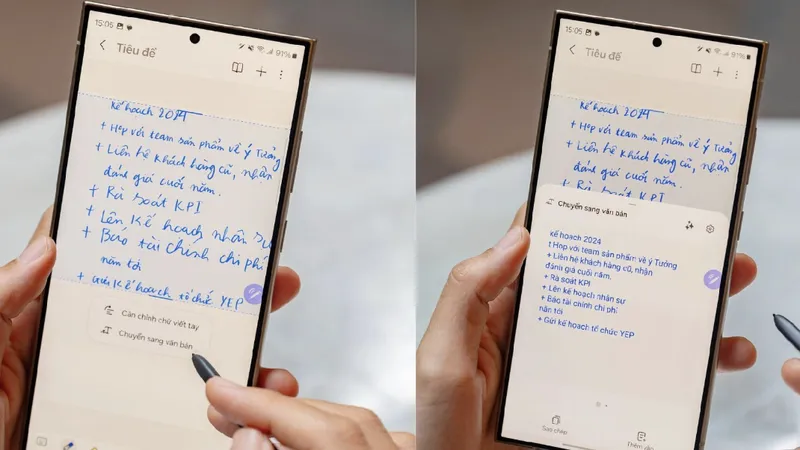 15:05
91%
Tiêu đề
Kế hoạch 2024
+ Họp với team sản phẩm về ý Tưởng
+ Liên hệ khách hàng cũ, nhận
đánh giá cuối năm.
+ Rà soát KPI
+ Lên kế hoạch nhân sự
+ Báo tài chính chi phí
năm tới
+ Gửi kế hoạch tổ chức YEP
Căn chỉnh chữ viết tay
Chuyển sang văn bản
15:05
91%
Tiêu đề
Kế hoạch 2024
+ Họp với team sản phẩm về ý Tưởng
+ Liên hệ khách hàng cũ, nhận
đánh giá cuối năm.
+ Rà soát KPI
Chuyển sang văn bản
kế hoạch 2024
t Họp với team sản phẩm về ý Tưởng
+ Liên hệ khách hàng cũ, nhận
đánh giá cuối năm.
+ Rà soát KPI
+ Lên kế hoạch nhân sự
+ Báo tài chính chi phí
năn tới
+ Gửi kế hoạch tổ chức YEP
Sao chép
Thêm vào